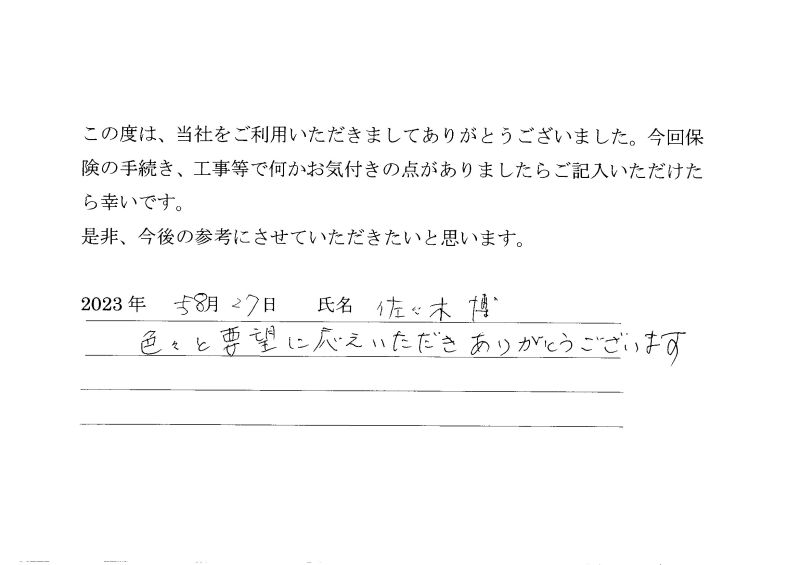 この度は、当社をご利用いただきましてありがとうございました。今回保
険の手続き、工事等で何かお気付きの点がありましたらご記入いただけた
ら幸いです。
是非、今後の参考にさせていただきたいと思います。
2023 年 8月 27日 氏名 佐々木 博
色々と要望に応えいただきありがとうございます